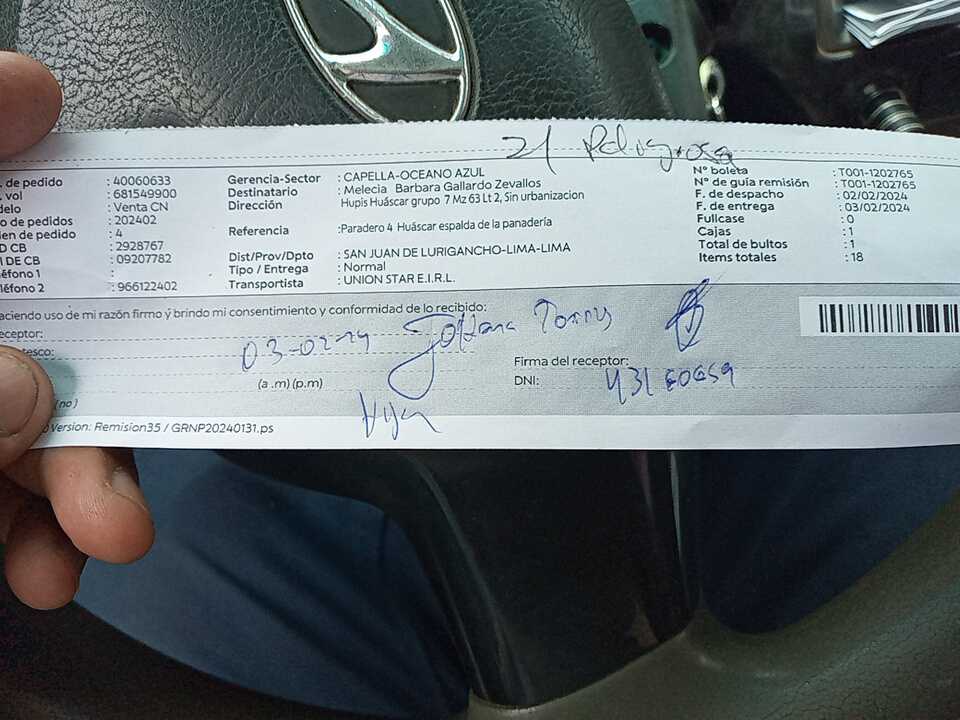 21 Peligrosa
. de pedido : 40060633 Gerencia-Sector : CAPELLA-OCEANO AZUL N° boleta : T001-1202765
. vol : 681549900 Destinatario : Melecia Barbara Gallardo Zevallos N° de guía remisión : T001-1202765
delo : Venta CN Dirección Hupis Huáscar grupo 7 Mz 63 Lt 2, Sin urbanizacion F. de despacho : 02/02/2024
o de pedidos : 202402 F. de entrega : 03/02/2024
en de pedido : 4 Referencia :Paradero 4 Huáscar espalda de la panadería Fullcase : 0
D CB : 2928767 Cajas : 1
I DE CB : 09207782 Dist/Prov/Dpto : SAN JUAN DE LURIGANCHO-LIMA-LIMA Total de bultos : 1
éfono 1 : Tipo / Entrega : Normal Items totales : 18
éfono 2 : 966122402 Transportista : UNION STAR E.I.R.L.
aciendo uso de mi razón firmo ý brindo mi consentimiento y conformidad de lo recibido:
ceptor:
tesco: 03-02-24
Firma del receptor:
(a .m) (p.m) DNI:
(no)
o Version: Remision35 / GRNP20240131.ps